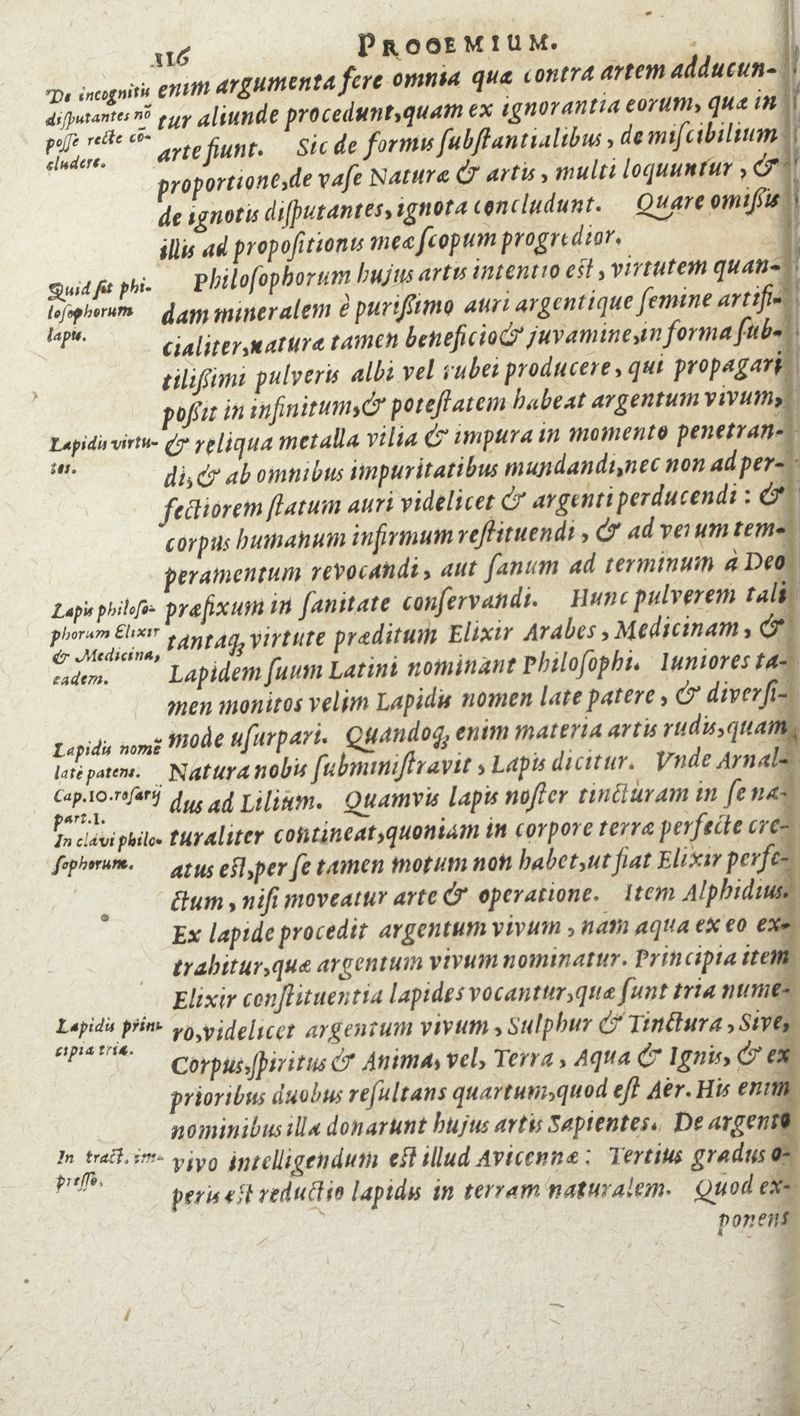 116
PROOEMIUM.
De incognitis
disputantes nō
posse recte cō-
cludere.
enim argumenta fere omnia quæ contra artem adducun-
tur aliunde procedunt, quam ex ignorantia eorum, quæ in
arte fiunt. Sic de formis substantialibus, de miscibilium
proportione, de vase Naturæ & artis, multi loquuntur, &
de ignotis disputantes, ignota concludunt. Quare omißis
illis ad propositionis meæ scopum progredior.
Quid sit phi-
losophorum
lapis.
Philosophorum hujus artis intentio est, virtutem quan-
dam mineralem è purißimo auri argentique semine artifi-
cialiter, naturæ tamen beneficio & juvamine, in forma sub-
tilißimi pulveris albi vel rubei producere, qui propagari
poßit in infinitum, & potestatem habeat argentum vivum,
Lapidis virtu-
tes.
& reliqua metalla vilia & impura in momento penetran-
di, & ab omnibus impuritatibus mundandi, nec non ad per-
fectiorem statum auri videlicet & argenti perducendi : &
corpus humanum infirmum restituendi, & ad verum tem-
peramentum revocandi, aut sanum ad terminum à Deo
Lapis philoso-
phorum Elixir
& Medicina,
eadem.
præfixum in sanitate conservandi. Hunc pulverem tali
tantaq; virtute præditum Elixir Arabes, Medicinam, &
Lapidem suum Latini nominant Philosophi. Iuniores ta-
men monitos velim Lapidis nomen late patere, & diversi-
Lapidis nomē
latè patens.
Cap.10.rosarij
part.1.
In clavi philo-
sophorum.
mode usurpari. Quandoq; enim materia artis rudis, quam
Natura nobis subministravit, Lapis dicitur. Vnde Arnal-
dus ad Lilium. Quamvis lapis noster tincturam in se na-
turaliter contineat, quoniam in corpore terræ perfecte cre-
atus est, per se tamen motum non habet, ut fiat Elixir perfe-
ctum, nisi moveatur arte & operatione. Item Alphidius.
Ex lapide procedit argentum vivum, nam aqua ex eo ex-
trahitur, quæ argentum vivum nominatur. Principia item
Elixir constituentia lapides vocantur, quæ sunt tria nume-
Lapidis prin-
cipia tria.
ro, videlicet argentum vivum, Sulphur & Tinctura, Sive,
Corpus, spiritus & Anima, vel, Terra, Aqua & Ignis, & ex
prioribus duobus resultans quartum, quod est Aër. His enim
nominibus illa donarunt hujus artis Sapientes. De argento
In tract. im-
presso.
vivo intelligendum est illud Avicennæ : Tertius gradus o-
peris est reductio lapidis in terram naturalem. Quod ex-
ponens